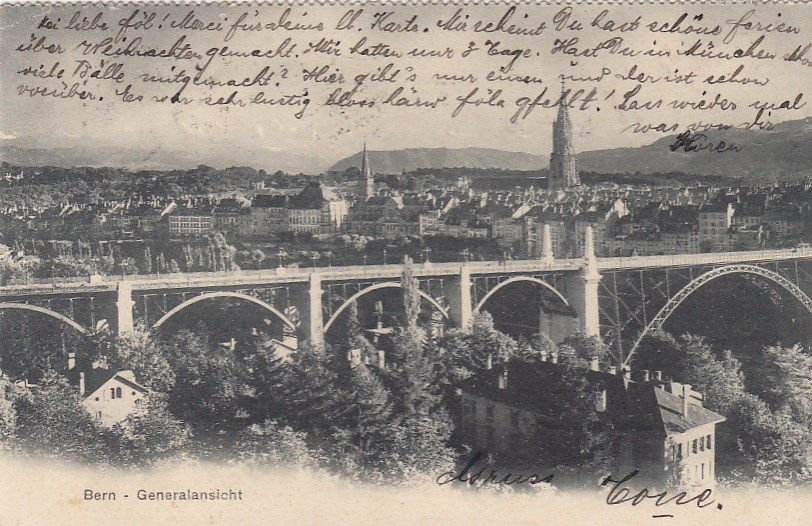 liebe föl! Merci für deine lb. Karte. Mir scheint Du hast schöne Ferien
über Weihnachten gemacht. Wir hatten nur 3 Tage. Hast Du in München
viele Bälle mitgemacht? Hier gibt's nur einen und der ist schon
vorüber. Es war sehr lustig bloss härw föla gfehlt! Lass wieder mal
was von dir
hören
Bern - Generalansicht
Gruss